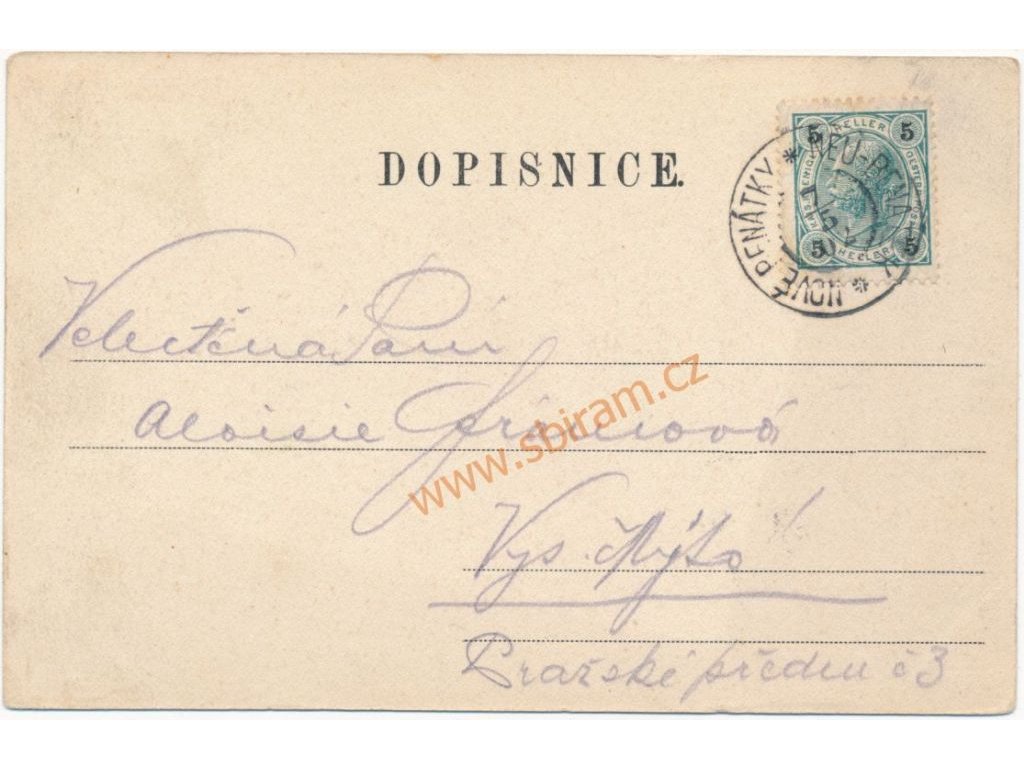 DOPISNICE.
5 HELLER 5
5 HELLER 5
NOVÉ BENÁTKY * NEU-BENA
Velectěná Paní
Aloisie
www.sbiram.cz
Vys. Mýto
Pražské předm č 3